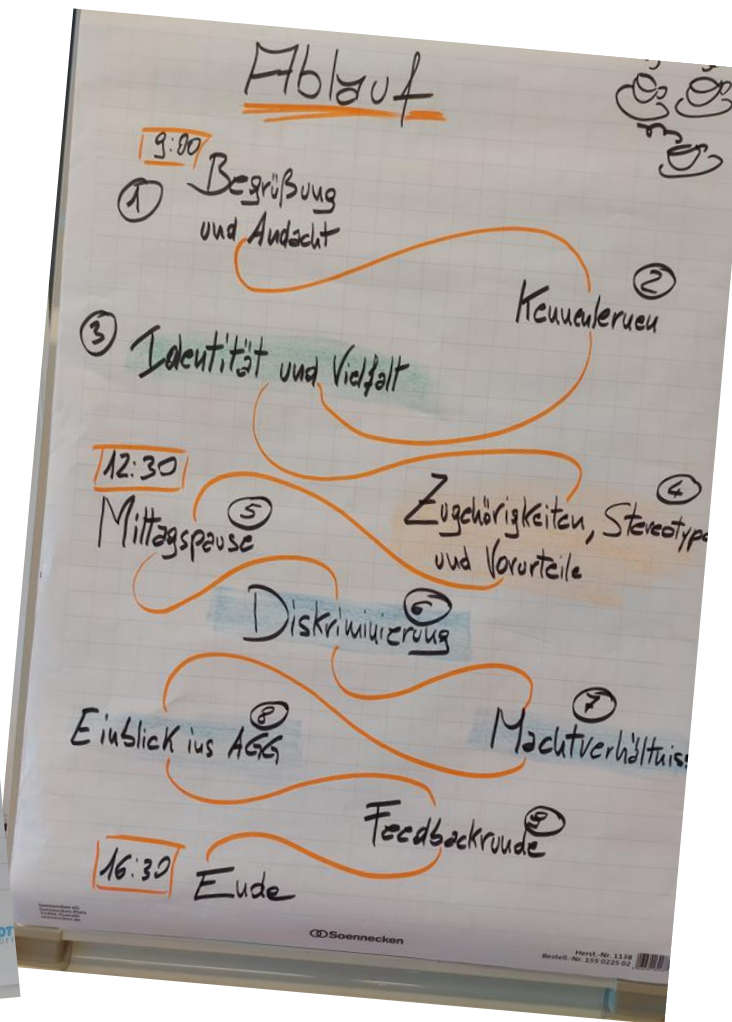 Ablauf
9:00
1
Begrüßung
und Andacht
2
Kennenlernen
3
Identität und Vielfalt
4
Zugehörigkeiten, Stereotype
und Vorurteile
12:30
5
Mittagspause
6
Diskriminierung
7
Machtverhältniss
8
Einblick ins AGG
9
Feedbackrunde
16:30
Ende
Soennecken
Herst.-Nr. 1138
Bestell.-Nr. 155 0225 02